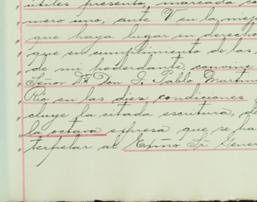 útiles presento, marcada co
mero uno, ante V en la mej
que haya lugar en derecho
que en cumplimiento de las
de mi poderdante, convine
Señor Dn Don J. Pablo Martin
Río en las diez condiciones
cluye la citada escritura, de
la octava expresa que se ha
terpelar al Exmo Sr Gener